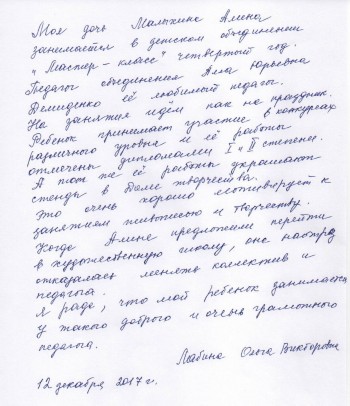 Моя дочь Малыхина Алина
занимается в детском объединении
"Мастер-класс" четвертый год.
Педагог объединения Алла Юрьевна
Демиденко её любимый педагог.
На занятия идём как на праздник.
Ребенок принимает участие в конкурсах
различного уровня и её работы
отмечены дипломами I и II степени.
А так же её работы украшают
стенды в Доме творчества.
Это очень хорошо мотивирует к
занятиям живописью и творчеству.
Когда Алине предложили перейти
в художественную школу, она наотрез
отказалась менять коллектив и
педагога.
Я рада, что мой ребенок занимается
у такого доброго и очень грамотного
педагога.
Ольга Викторовна
12 декабря 2017 г.